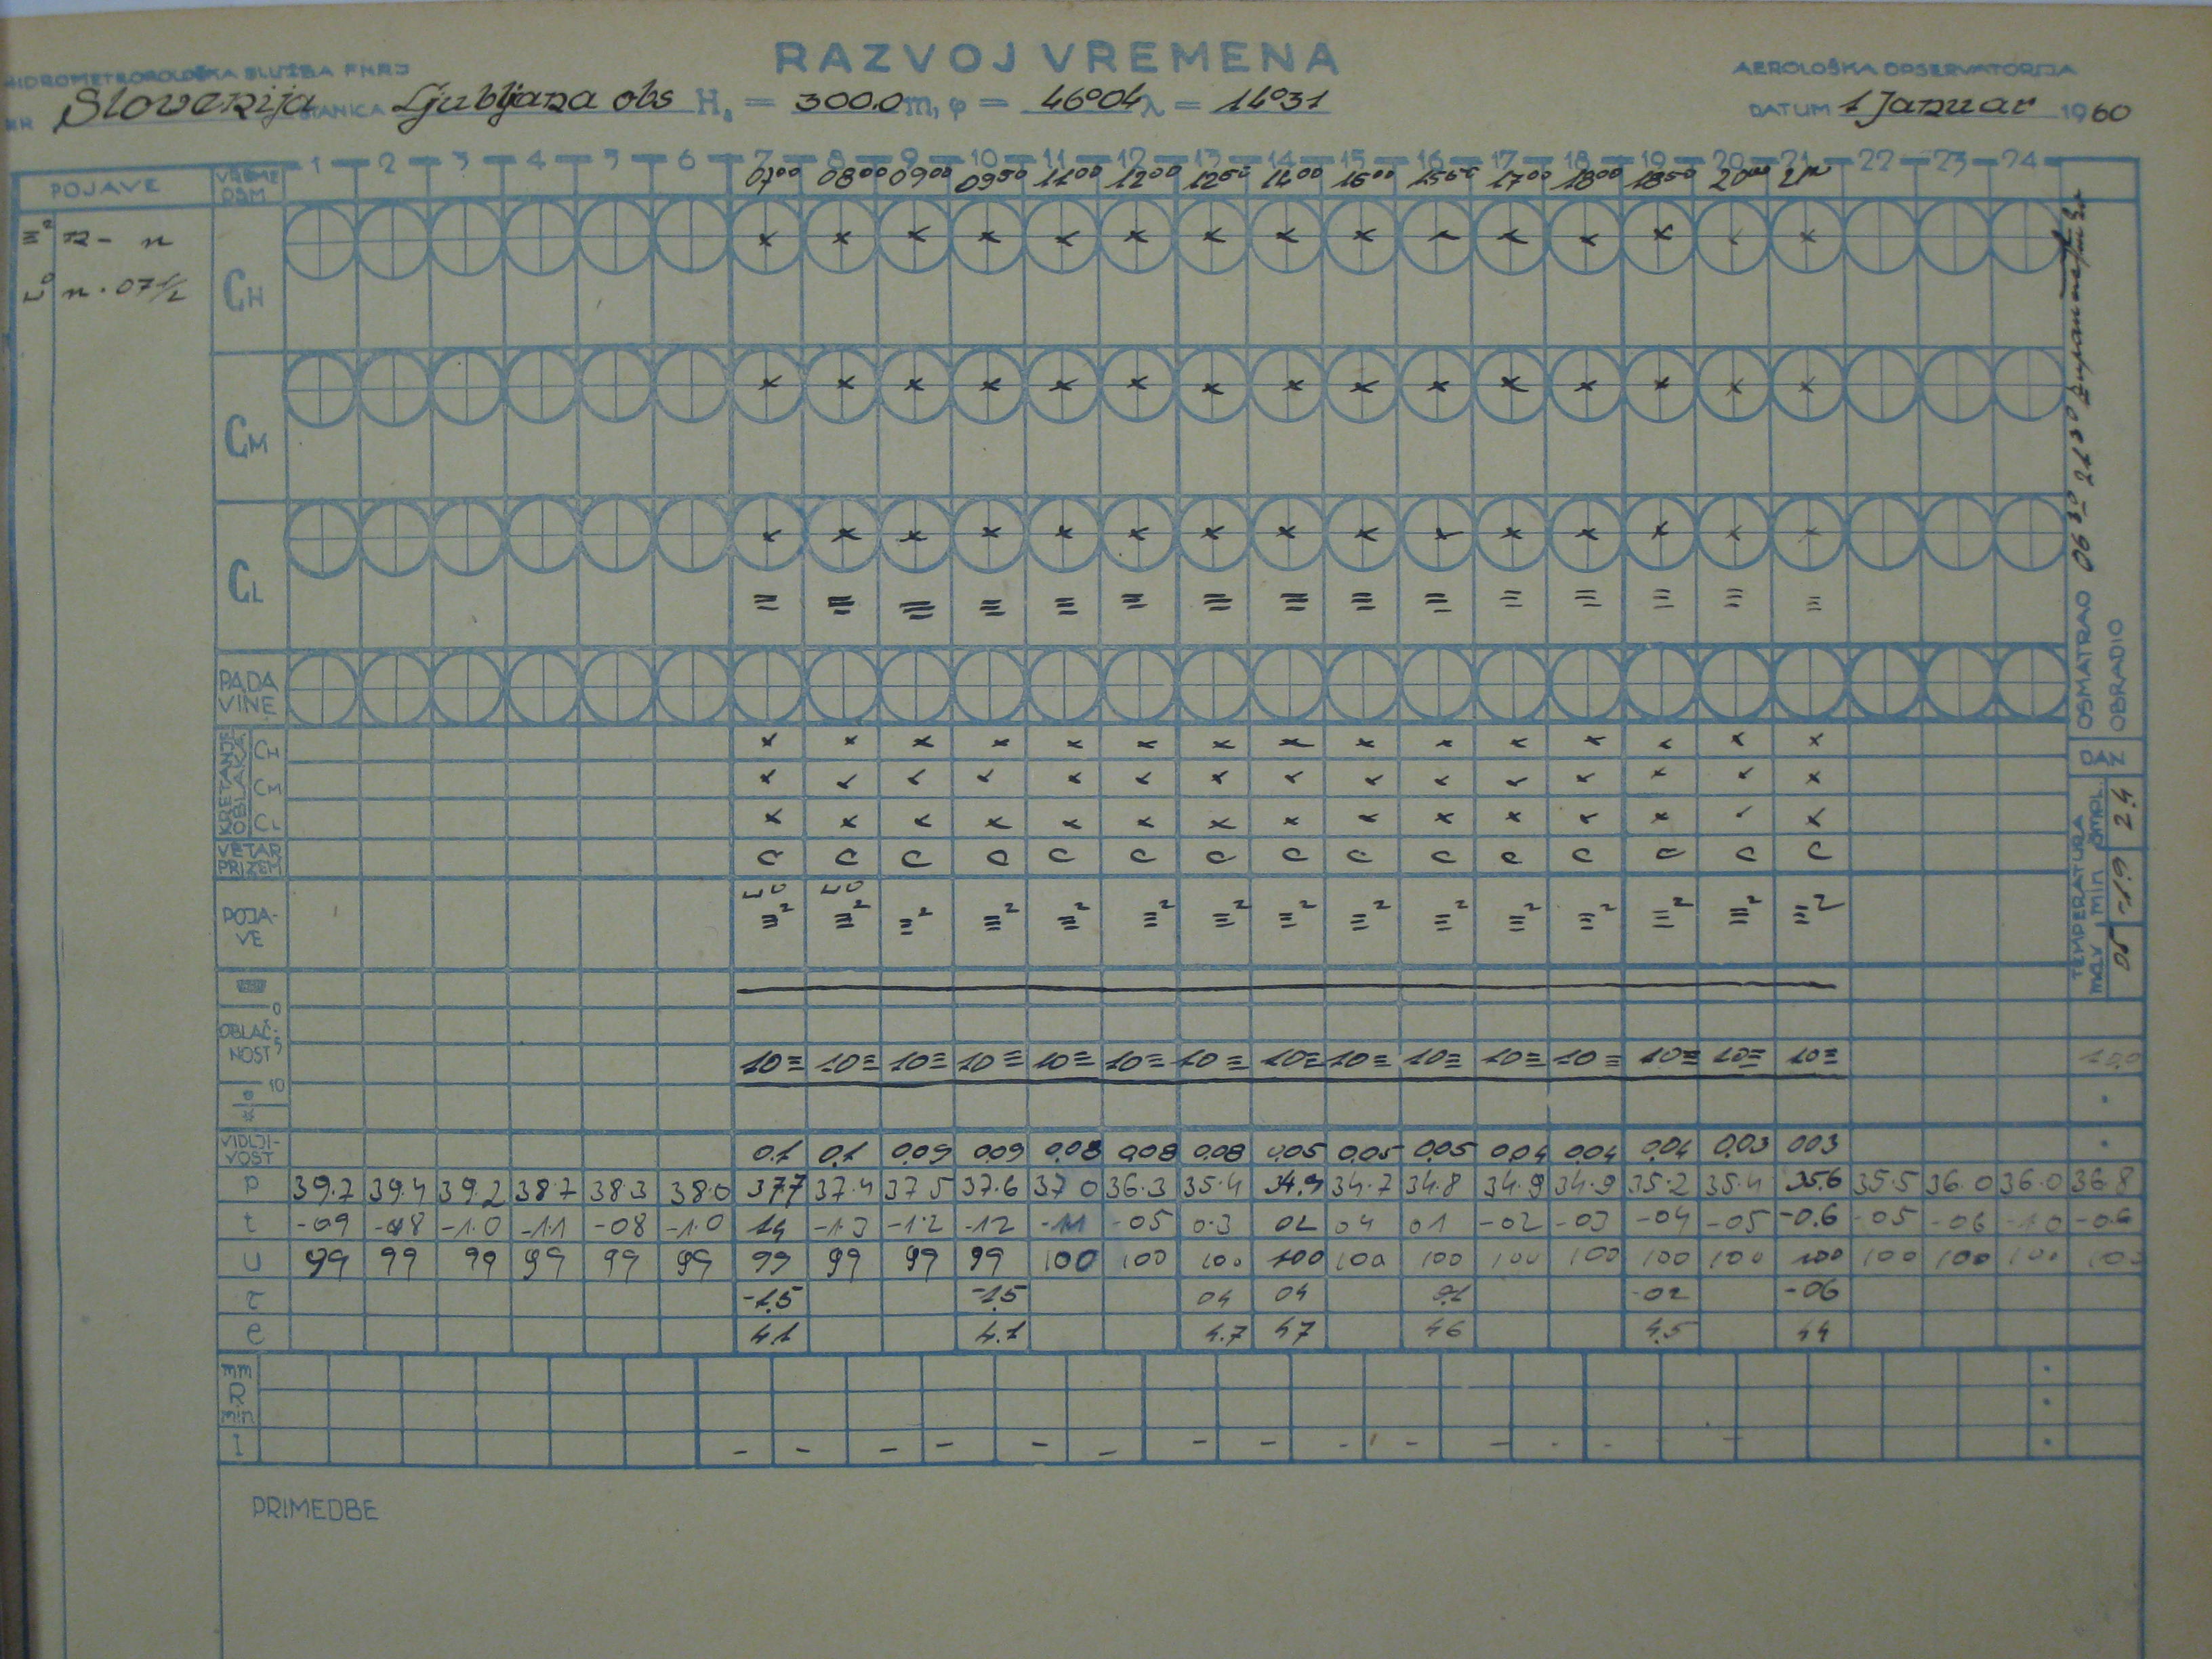 RAZVOJ VREMENA
HIDROMETEOROLOŠKA SLUŽBA FNRJ
AEROLOŠKA OPSERVATORIJA
NR Slovenija STANICA Ljubljana obs Hs = 300.0 m, φ = 46°04 λ = 14°31
DATUM 1 Januar 1960
POJAVE VREME OSM. 1 2 3 4 5 6 7 8 9 10 11 12 13 14 15 16 17 18 19 20 21 22 23 24
07⁰⁰ 08⁰⁰ 09⁰⁰ 09⁵⁰ 11⁰⁰ 12⁰⁰ 12⁵⁰ 14⁰⁰ 15⁵⁰ 17⁰⁰ 18⁰⁰ 18⁵⁰ 20⁰⁰
≡² n
n · 07½
CH × × × × × × × × × × × × × × ×
CM × × × × × × × × × × × × × × ×
CL × × × × × × × × × × × × × × ×
≡ ≡ ≡ ≡ ≡ ≡ ≡ ≡ ≡ ≡ ≡ ≡ ≡ ≡ ≡
PADAVINE
KRETANJE OBLAKA
CH × × × × × × × × × × × × × × ×
CM × × × × × × × × × × × × × × ×
CL × × × × × × × × × × × × × × ×
VETAR PRIZEM C C C C C C C C C C C C C C C
POJAVE ≡² ≡² ≡² ≡² ≡² ≡² ≡² ≡² ≡² ≡² ≡² ≡² ≡² ≡² ≡²
OBLAČNOST 0 5 10
10≡ 10≡ 10≡ 10≡ 10≡ 10≡ 10≡ 10≡ 10≡ 10≡ 10≡ 10≡ 10≡ 10≡ 10≡ 10.0
VIDLJIVOST 0.1 0.1 0.09 0.09 0.08 0.08 0.08 0.05 0.05 0.05 0.04 0.04 0.04 0.03 003
P 39.7 39.4 39.2 38.7 38.3 38.0 377 37.4 37.5 37.6 37.0 36.3 35.4 34.9 34.7 34.8 34.9 34.9 35.2 35.4 35.6 35.5 36.0 36.0 36.8
t -09 -08 -1.0 -1.1 -08 -1.0 14 -1.3 -1.2 -12 -11 -05 0.3 02 04 01 -02 -03 -04 -05 -0.6 -05 -06 -1.0 -0.6
U 99 99 99 99 99 99 99 99 99 99 100 100 100 100 100 100 100 100 100 100 100 100 100 100 100
τ -1.5 -1.5 04 04 0.1 -02 -06
e 4.1 4.1 4.7 47 46 4.5 44
mm R min
I - - - - - - - - - -
PRIMEDBE
OSMATRAO 06³⁰ 21³⁰
OBRADIO
DAN
TEMPERATURA
max min ampl.
05 -1.9 2.4